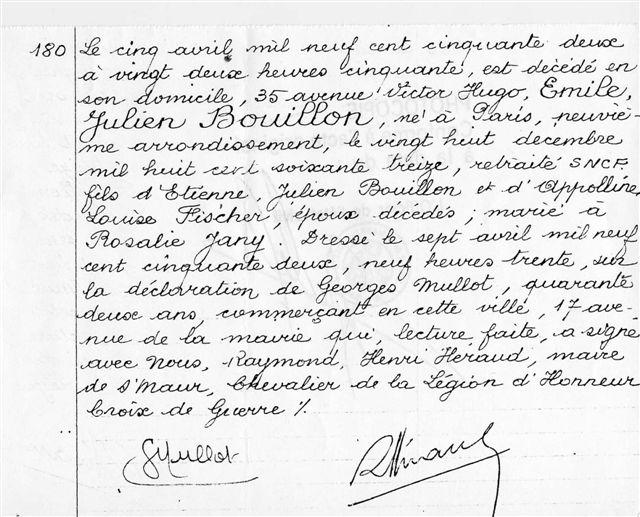 180 Le cinq avril mil neuf cent cinquante deux
à vingt deux heures cinquante, est décédé en
son domicile, 35 avenue Victor Hugo, Emile,
Julien Bouillon, né à Paris, neuviè-
me arrondissement, le vingt huit decembre
mil huit cent soixante treize, retraité SNCF,
fils d'Etienne, Julien Bouillon et d'Appolline,
Louise Fischer, époux décédés ; marié à
Rosalie Jany. Dressé le sept avril mil neuf
cent cinquante deux, neuf heures trente, sur
la déclaration de Georges Mullot, quarante
deux ans, commerçant en cette ville, 17 ave-
nue de la mairie qui, lecture faite, a signé
avec Nous, Raymond, Henri Heraud, maire
de St Maur, Chevalier de la Légion d'Honneur
Croix de Guerre ./.
GMullot